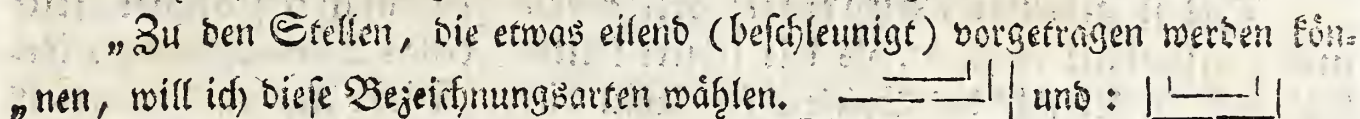 „Zu den Stellen, die etwas eilend (beſchleunigt) vorgetragen werden kön⸗
„nen, will ich dieſe Bezeichnungsarten wählen. und :